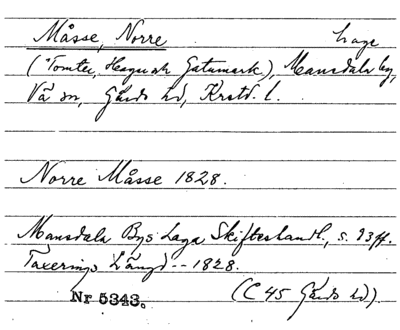 Måsse, Norre hage
("Tomter, Hagar ock Gatumark), Mansdala by,
Vä sn, Gärds hd, Krstd. l.
Norre Måsse 1828.
Mansdala Bys Laga Skifteshandl., s. 93ff.
Taxerings Längd -- 1828.
(C 45 Gärds hd).
Nr 5343.